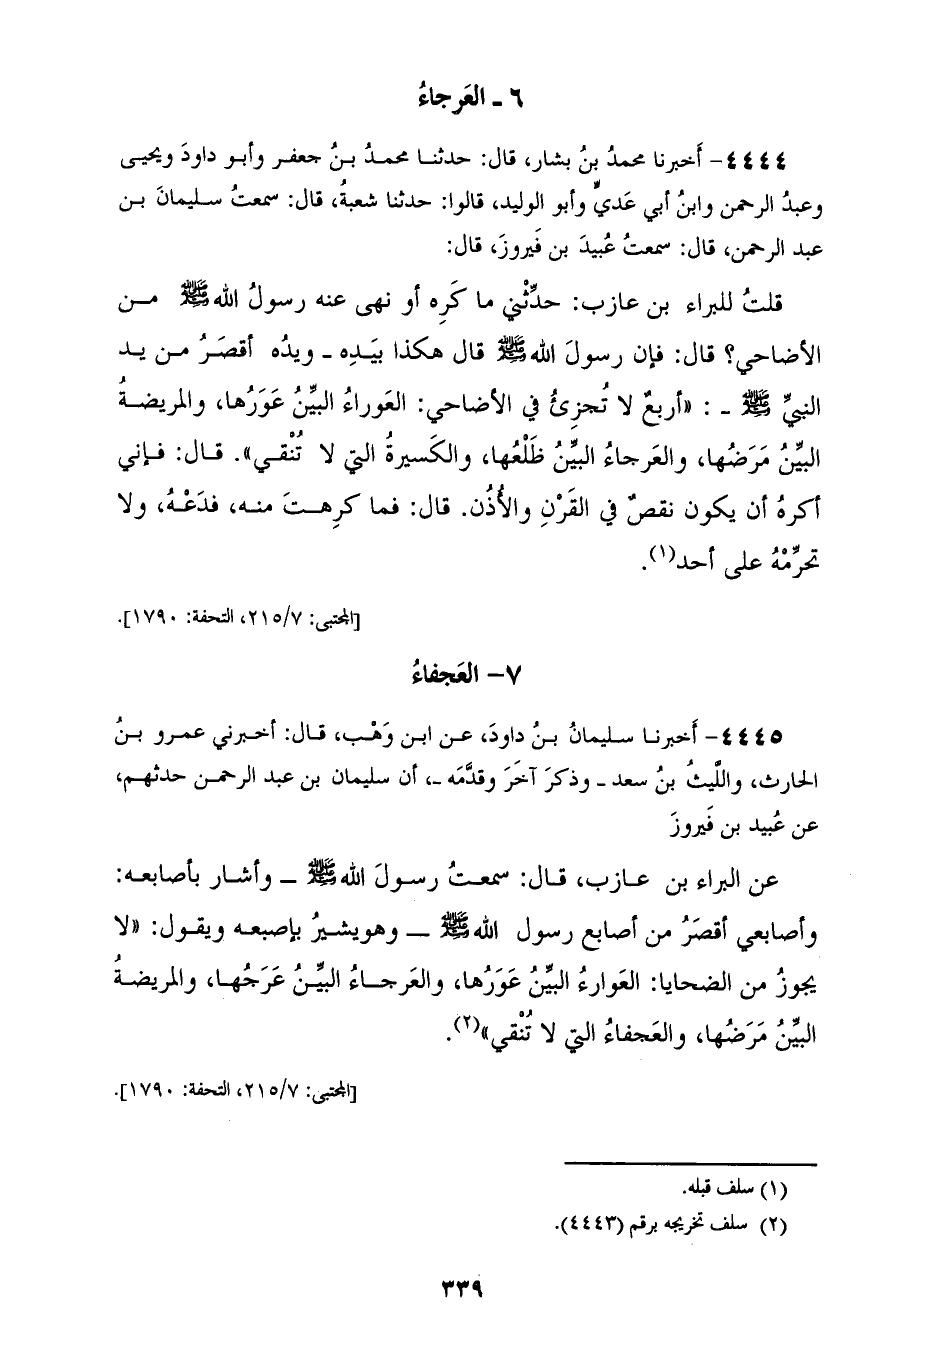 ٦ ـ العَرجاءُ
٤٤٤٤- أَخبرنا محمدُ بنُ بشار، قال: حدثنا محمدُ بنُ جعفر وأبو داودَ ويحيى
وعبدُ الرحمن وابنُ أبي عَديٍّ وأبو الوليد، قالوا: حدثنا شعبةُ، قال: سمعتُ سليمانَ بن
عبد الرحمن، قال: سمعتُ عُبيدَ بن فَيروزَ، قال:
قلتُ للبراء بن عازب: حدِّثْني ما كَرِه أو نهى عنه رسولُ الله ﷺ من
الأضاحي؟ قال: فإن رسولَ الله ﷺ قال هكذا بيَدِه ـ ويدُه أقصَرُ من يد
النبيِّ ﷺ ـ : «أربعٌ لا تُجزِئُ في الأضاحي: العَوراءُ البيِّنُ عَوَرُها، والمريضةُ
البيِّنُ مَرَضُها، والعَرجاءُ البيِّنُ ظَلْعُها، والكَسيرةُ التي لا تُنْقي». قال: فإني
أكرهُ أن يكون نقصٌ في القَرْنِ والأُذُن. قال: فما كرِهتَ منه، فدَعْهُ، ولا
تحرِّمْهُ على أحد(١).
[المجتبى: ٢١٥/٧، التحفة: ١٧٩٠].
٧- العَجفاءُ
٤٤٤٥- أَخبرنا سليمانُ بنُ داودَ، عن ابن وَهْب، قال: أخبرني عمرو بنُ
الحارث، واللَّيثُ بنُ سعد ـ وذكرَ آخَرَ وقدَّمَه ـ، أن سليمان بن عبد الرحمن حدثهم،
عن عُبيد بن فَيروزَ
عن البراء بن عازب، قال: سمعتُ رسولَ الله ﷺ ـ وأشار بأصابعه:
وأصابعي أقصَرُ من أصابع رسول الله ﷺ ـ وهويشيرُ بإصبعه ويقول: «لا
يجوزُ من الضحايا: العَوارءُ البيِّنُ عَوَرُها، والعَرجاءُ البيِّنُ عَرَجُها، والمريضةُ
البيِّنُ مَرَضُها، والعَجفاءُ التي لا تُنْقي»(٢).
[المجتبى: ٢١٥/٧، التحفة: ١٧٩٠].
(١) سلف قبله.
(٢) سلف تخريجه برقم (٤٤٤٣).
٣٣٩